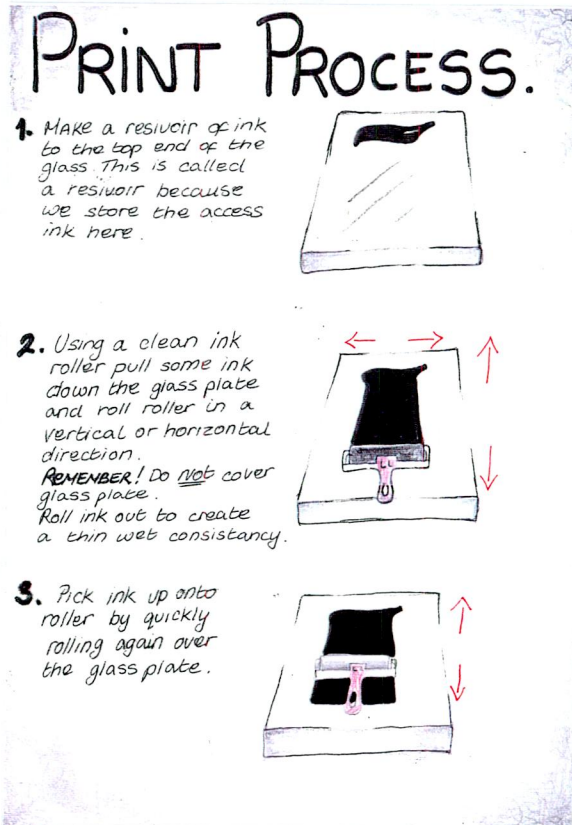 PRINT PROCESS.
1. MAKE a resivoir of ink
to the top end of the
glass. This is called
a resivoir because
we store the access
ink here.
2. Using a clean ink
roller pull some ink
down the glass plate
and roll roller in a
vertical or horizontal
direction.
REMEMBER! Do Not cover
glass plate.
Roll ink out to create
a thin wet consistancy.
3. Pick ink up onto
roller by quickly
rolling again over
the glass plate.